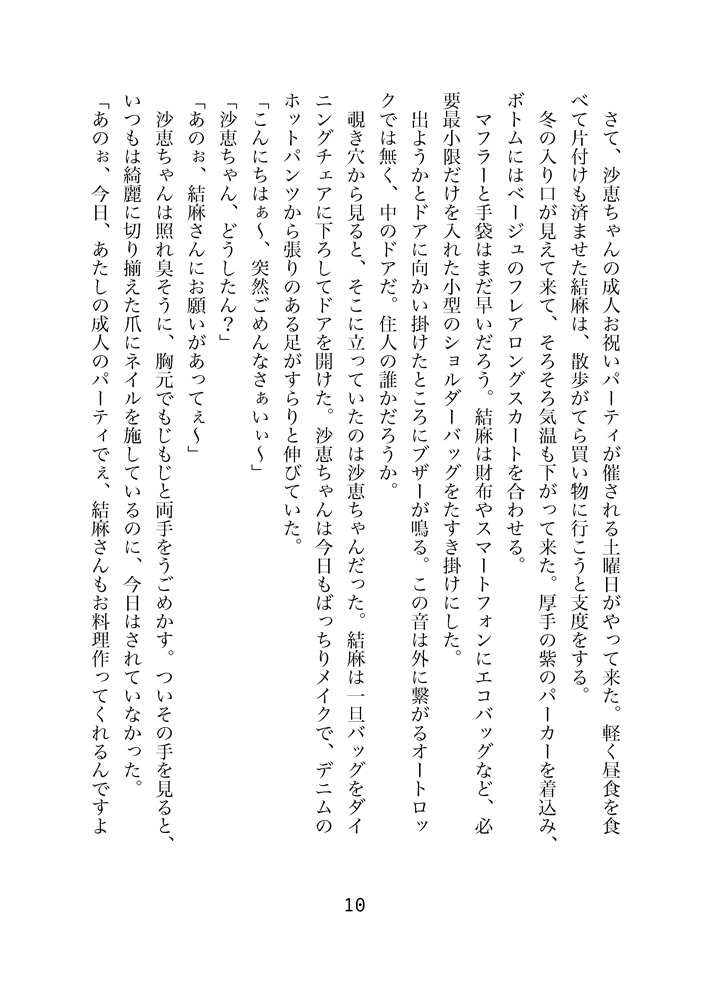 さて、沙恵ちゃんの成人お祝いパーティが催される土曜日がやって来た。軽く昼食を食
べて片付けも済ませた結麻は、散歩がてら買い物に行こうと支度をする。
　冬の入り口が見えて来て、そろそろ気温も下がって来た。厚手の紫のパーカーを着込み、
ボトムにはベージュのフレアロングスカートを合わせる。
　マフラーと手袋はまだ早いだろう。結麻は財布やスマートフォンにエコバッグなど、必
要最小限だけを入れた小型のショルダーバッグをたすき掛けにした。
　出ようかとドアに向かい掛けたところにブザーが鳴る。この音は外に繋がるオートロッ
クでは無く、中のドアだ。住人の誰かだろうか。
　覗き穴から見ると、そこに立っていたのは沙恵ちゃんだった。結麻は一旦バッグをダイ
ニングチェアに下ろしてドアを開けた。沙恵ちゃんは今日もばっちりメイクで、デニムの
ホットパンツから張りのある足がすらりと伸びていた。
「こんにちはぁ〜、突然ごめんなさぁいぃ〜」
「沙恵ちゃん、どうしたん？」
「あのぉ、結麻さんにお願いがあってぇ〜」
　沙恵ちゃんは照れ臭そうに、胸元でもじもじと両手をうごめかす。ついその手を見ると、
いつもは綺麗に切り揃えた爪にネイルを施しているのに、今日はされていなかった。
「あのぉ、今日、あたしの成人のパーティでぇ、結麻さんもお料理作ってくれるんですよ
10